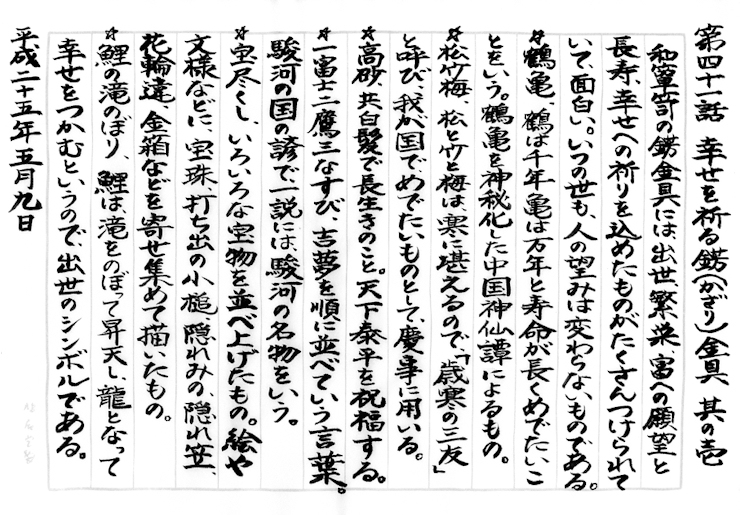 第四十一話 幸せを祈る錺(かざり)金具 其の壱
和箪笥の錺金具には、出世、繁栄、富への願望と
長寿、幸せへの祈りを込めたものがたくさんつけられて
いて、面白い。いつの世も、人の望みは変わらないものである。
☆鶴亀、鶴は千年亀は万年と寿命が長くめでたいこ
とをいう。鶴亀を神秘化した中国神仙譚によるもの。
☆松竹梅、松と竹と梅は、寒に堪えるので、「歳寒の三友」
と呼び、我が国でめでたいものとして、慶事に用いる。
☆高砂、共白髪で長生きのこと。天下泰平を祝福する。
☆一富士二鷹三なすび、吉夢を順に並べていう言葉。
駿河の国の諺で一説には、駿河の名物をいう。
☆宝尽くし、いろいろな宝物を並べ上げたもの。絵や
文様などに、宝珠、打ち出の小槌、隠れみの、隠れ笠、
花輪違、金箱などを寄せ集めて描いたもの。
☆鯉の滝のぼり、鯉は滝をのぼって昇天し、龍となって
幸せをつかむというので、出世のシンボルである。
平成二十五年五月九日